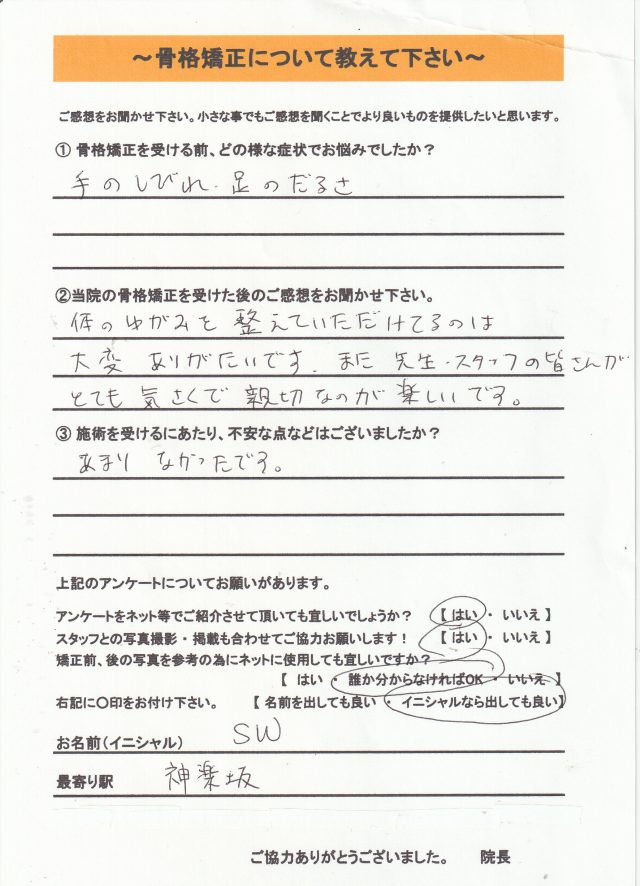 ～骨格矯正について教えて下さい～
ご感想をお聞かせ下さい。小さな事でもご感想を聞くことでより良いものを提供したいと思います。
① 骨格矯正を受ける前、どの様な症状でお悩みでしたか？
手のしびれ・足のだるさ
②当院の骨格矯正を受けた後のご感想をお聞かせ下さい。
体のゆがみを整えていただけてるのは
大変ありがたいです。また先生・スタッフの皆さんが
とても気さくで親切なのが楽しいです。
③ 施術を受けるにあたり、不安な点などはございましたか？
あまりなかったです。
上記のアンケートについてお願いがあります。
アンケートをネット等でご紹介させて頂いても宜しいでしょうか？ 【 はい ・ いいえ 】
スタッフとの写真撮影・掲載も合わせてご協力お願いします！ 【 はい ・ いいえ 】
矯正前、後の写真を参考の為にネットに使用しても宜しいですか？
【 はい ・ 誰か分からなければOK ・ いいえ 】
右記に〇印をお付け下さい。 【 名前を出しても良い ・ イニシャルなら出しても良い】
お名前（イニシャル） SW
最寄り駅 神楽坂
ご協力ありがとうございました。 院長